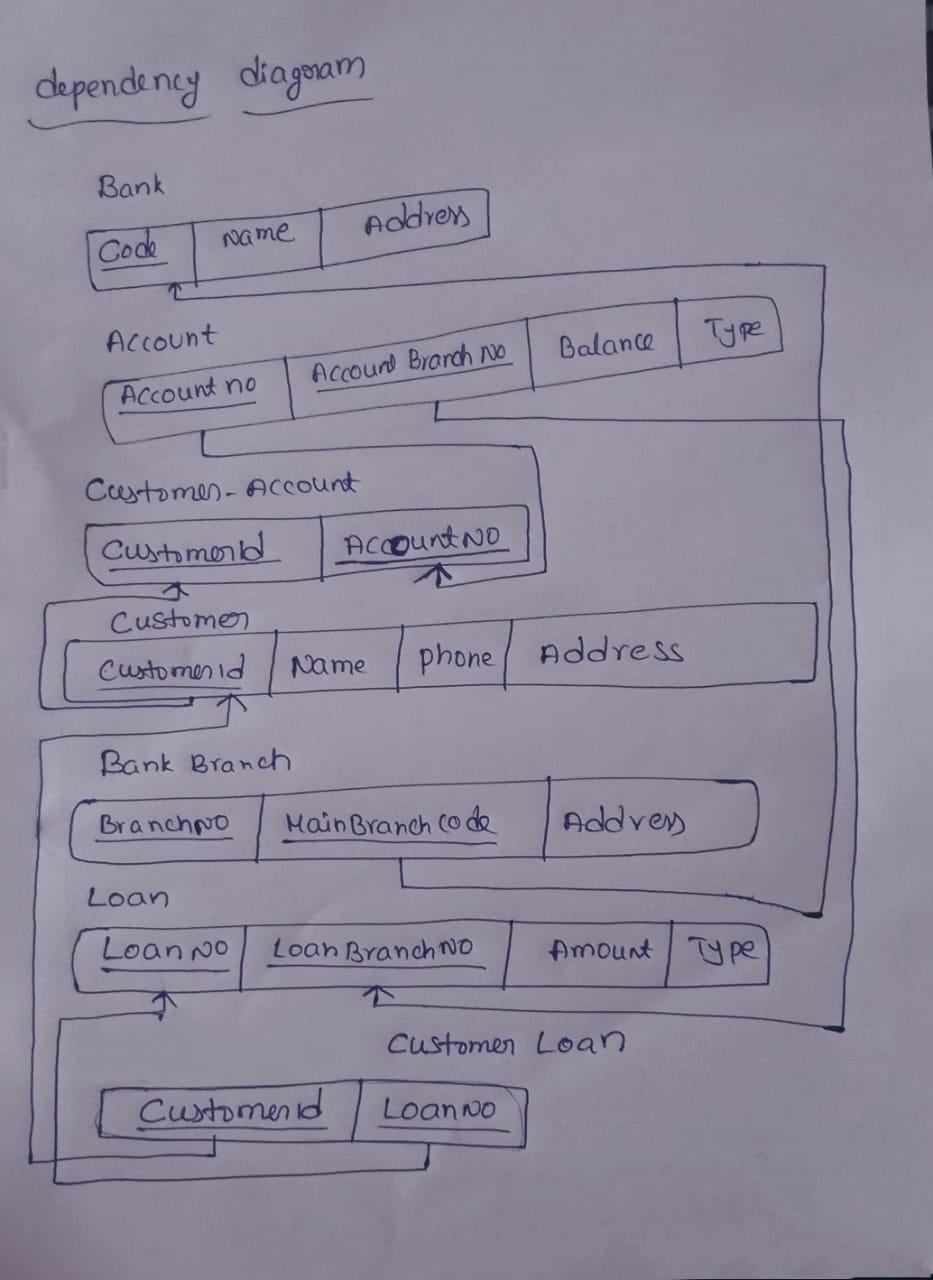 dependency diagram
Bank
Code Name Address
Account
Account no Account Branch No Balance Type
Customer-Account
CustomerId AccountNo
Customer
CustomerId Name phone Address
Bank Branch
BranchNo MainBranchCode Address
Loan
LoanNo LoanBranchNo Amount Type
Customer Loan
CustomerId LoanNo